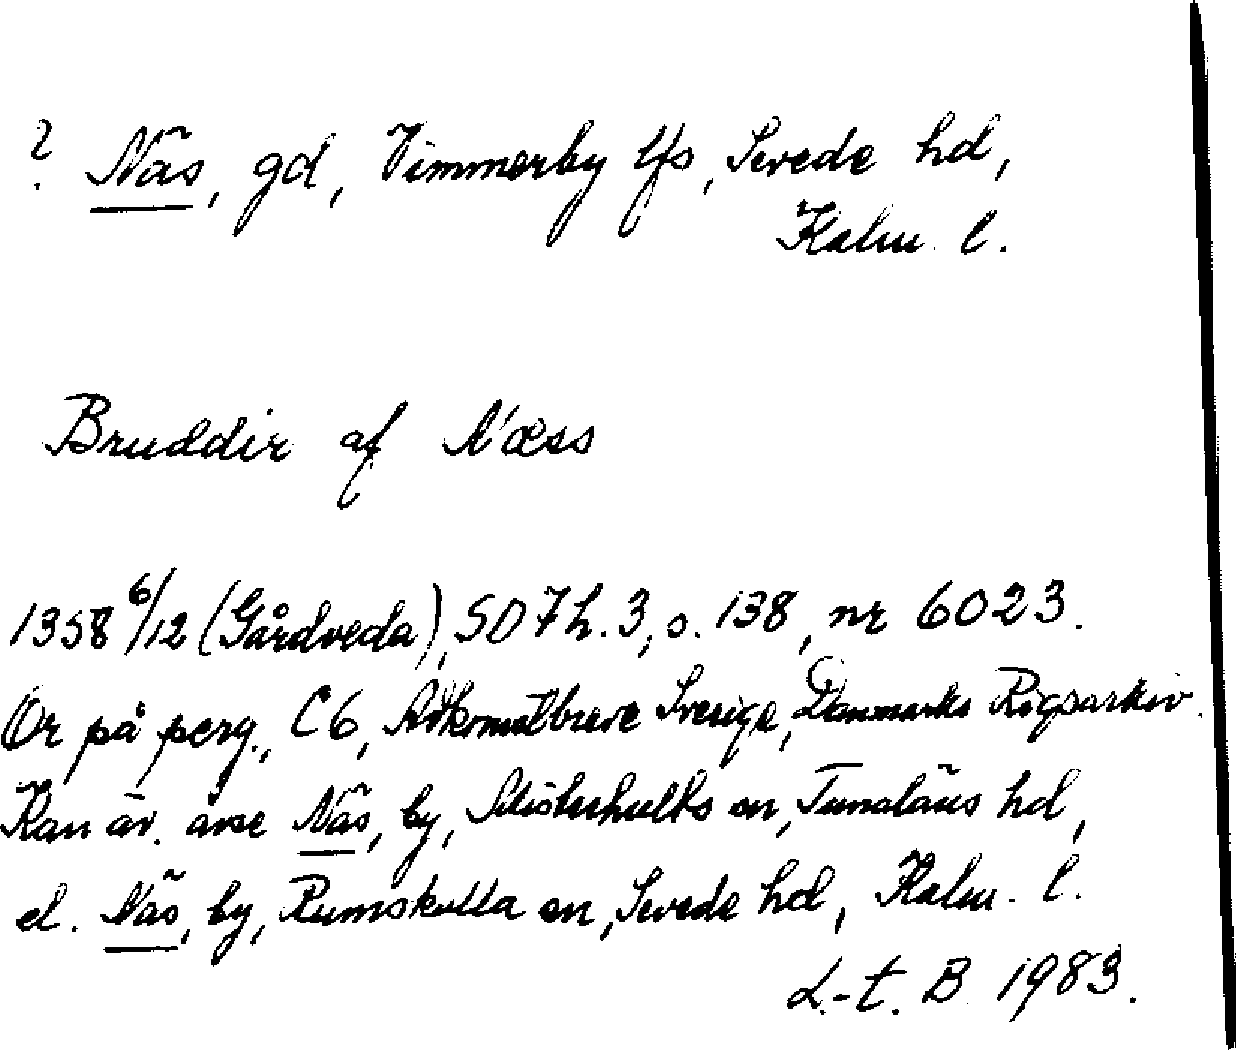 ? Näs, gd, Vimmerby lfs, Sevede hd,
Kalm. l.
Bruddir af Næss
1358 6/12 (Gårdveda), SD 7 h. 3, s. 138, nr 6023.
Or på perg., C6, Adkomstbreve Sverige, Danmarks Rigsarkiv.
Kan äv. avse Näs, by, Misterhults sn, Tunaläns hd,
el. Näs, by, Rumskulla sn, Sevede hd, Kalm. l.
L.-t. B 1983.